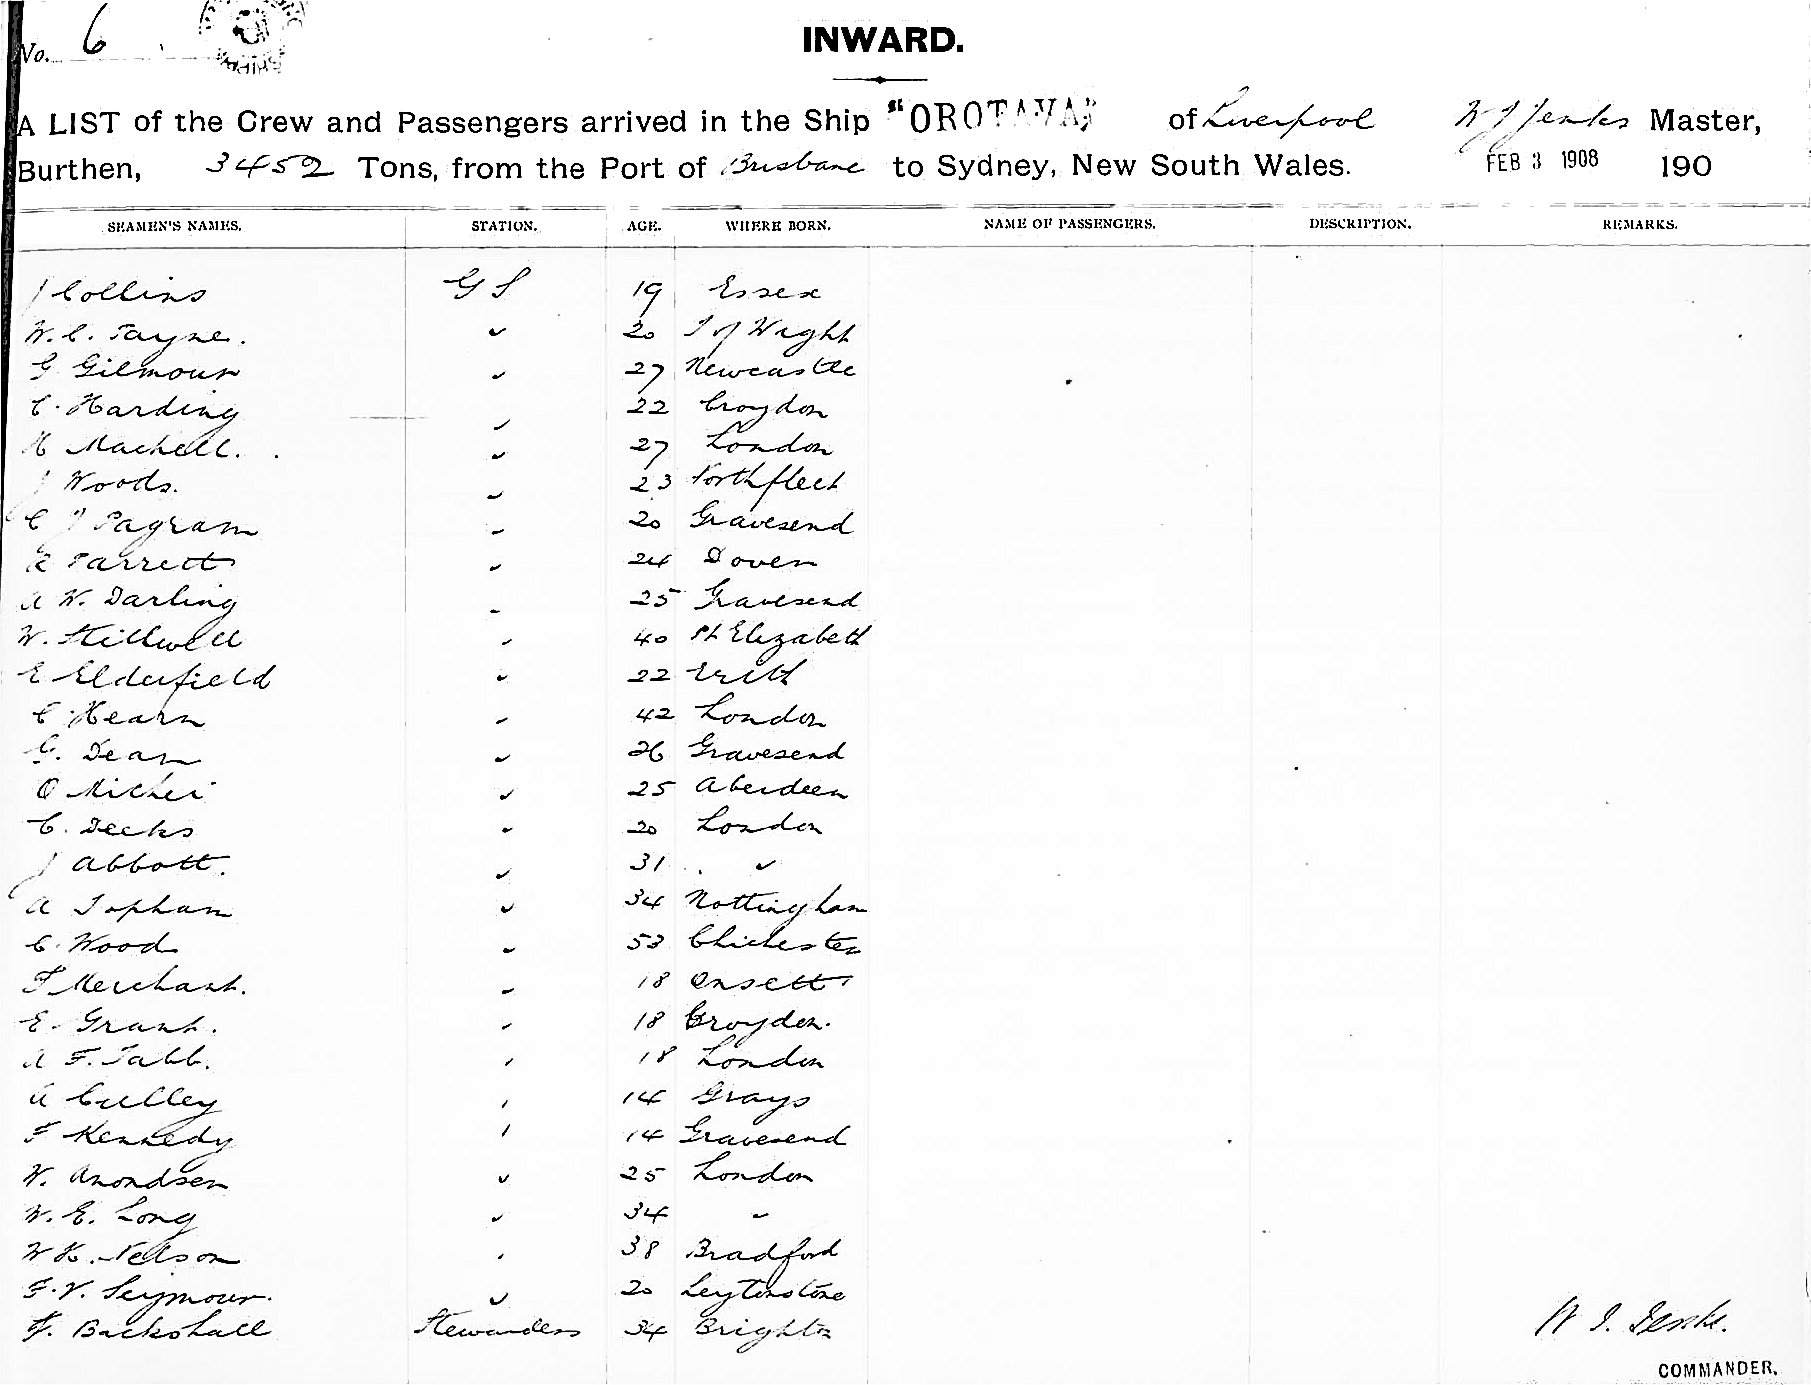 No. 6
INWARD.
A LIST of the Crew and Passengers arrived in the Ship "OROTAVA" of Liverpool W J Jenks Master,
Burthen, 3452 Tons, from the Port of Brisbane to Sydney, New South Wales. FEB 3 1908 190
SEAMEN'S NAMES. STATION. AGE. WHERE BORN. NAME OF PASSENGERS. DESCRIPTION. REMARKS.
J Collins G S 19 Essex
W. C. Payne. " 20 I of Wight
G Gilmour " 27 Newcastle
C. Harding " 22 Croydon
H Machell. " 27 London
J Woods. " 23 Northfleet
C J Pagram " 20 Gravesend
R Parrett " 24 Dover
A W. Darling " 25 Gravesend
W. Stillwell " 40 Pt Elizabeth
E Elderfield " 22 Erith
C. Hearn " 42 London
G. Dean " 26 Gravesend
O Michei " 25 Aberdeen
C. Deeks " 20 London
J Abbott. " 31 "
A Topham " 34 Nottingham
C. Wood " 53 Chichester
F Merchant. " 18 Orsett
E. Grant. " 18 Croydon.
A F. Tabb. " 18 London
A Culley " 14 Grays
F Kennedy " 14 Gravesend
W. Anondsen " 25 London
W. E. Long " 34 "
W H. Nelson " 38 Bradford
F. V. Seymour. " 20 Leytonstone
F. Backshall Stewardess 34 Brighton
W J. Jenks.
COMMANDER.